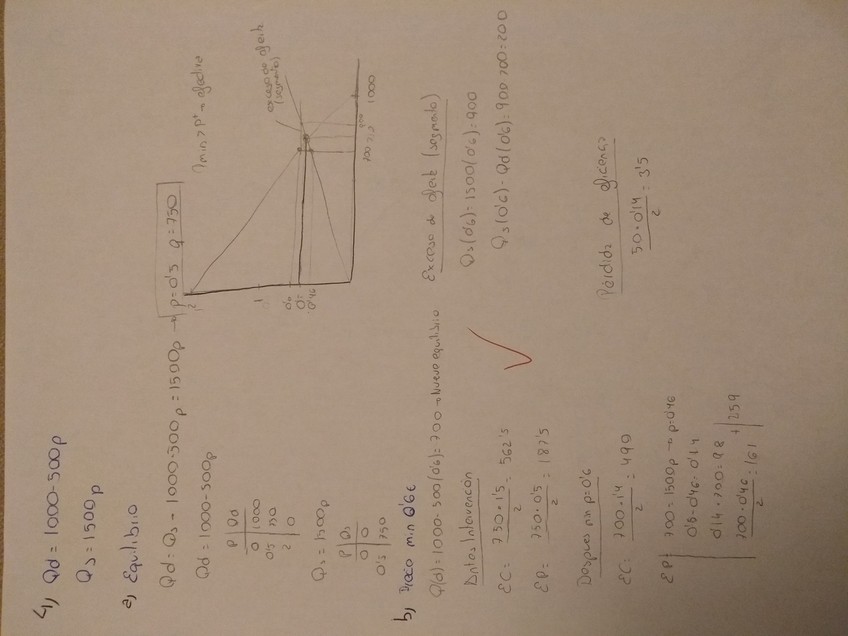 4) Qd = 1000-500p
Qs = 1500p
a) Equilibrio
Qd = Qs → 1000-500p = 1500p → p = 0'5 q = 750
Qd = 1000-500p
P | Qd
0 | 1000
0'5 | 750
2 | 0
Qs = 1500p
P | Qs
0 | 0
0'5 | 750
Pmin > p* → efectivo
exceso de oferta
(segmento)
2
1
0'6
0'5
0'46
700 750 900 1000
b) Precio min 0'6€
Q(d) = 1000-500(0'6) = 700 → Nuevo equilibrio
Antes Intervención
EC = 750·1'5 / 2 = 562'5
EP = 750·0'5 / 2 = 187'5
Despues pm p=0'6
EC = 700·1'4 / 2 = 490
EP | 700 = 1500p → p=0'46
0'6-0'46 = 0'14
0'14·700 = 98
700·0'46 / 2 = 161 + | 259
Exceso de oferta (segmento)
Qs(0'6) = 1500(0'6) = 900
Qs(0'6) - Qd(0'6) = 900-700 = 200
Pérdida de eficiencia
50·0'14 / 2 = 3'5